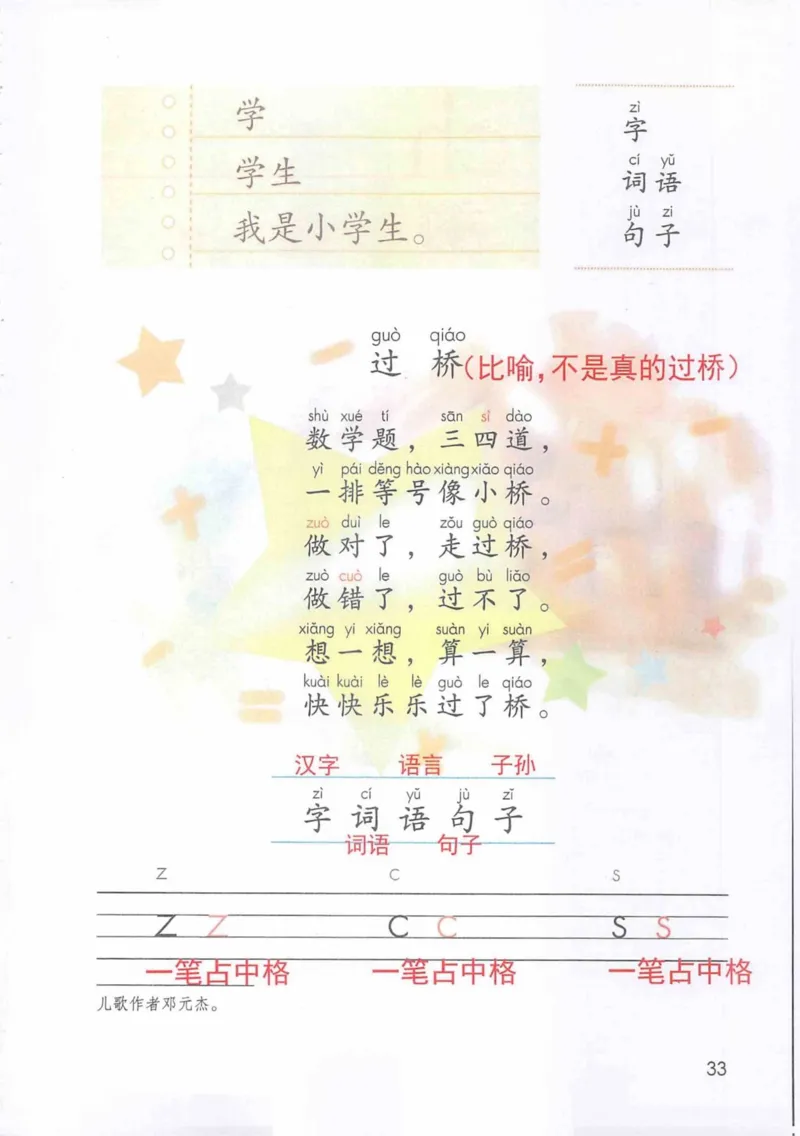 学
学生
我是小学生。
zì
字
cí yǔ
词语
jù zi
句子
guò qiáo
过 桥(比喻,不是真的过桥)
shù xué tí sān sì dào
数学题，三四道，
yì pái děng hào xiàng xiǎo qiáo
一排等号像小桥。
zuò duì le zǒu guò qiáo
做对了，走过桥，
zuò cuò le guò bù liǎo
做错了，过不了。
xiǎng yi xiǎng suàn yi suàn
想一想，算一算，
kuài kuài lè lè guò le qiáo
快快乐乐过了桥。
汉字 语言 子孙
zì cí yǔ jù zǐ
字 词 语 句 子
词语 句子
z c s
z z c c s s
一笔占中格 一笔占中格 一笔占中格
儿歌作者邓元杰。
33